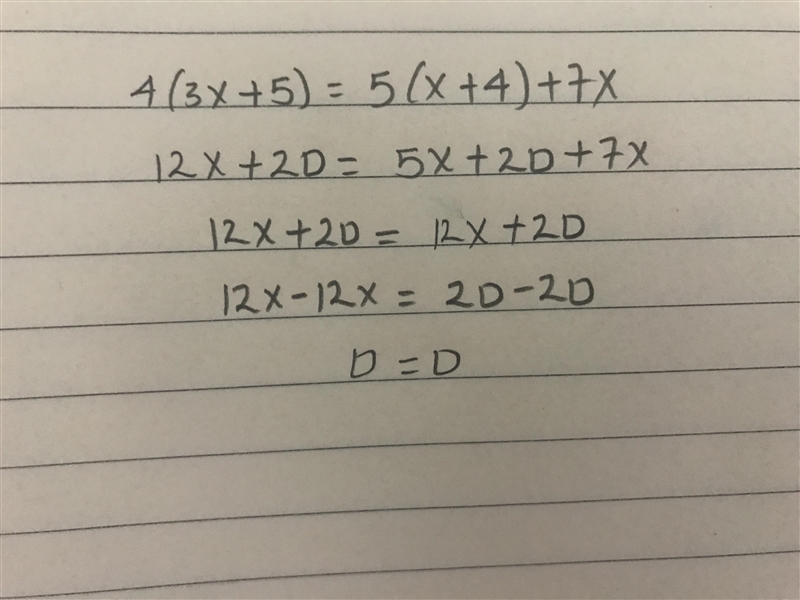 4(3x+5) = 5(x+4)+7x
12x+20 = 5x+20+7x
12x+20 = 12x+20
12x-12x = 20-20
0 = 0